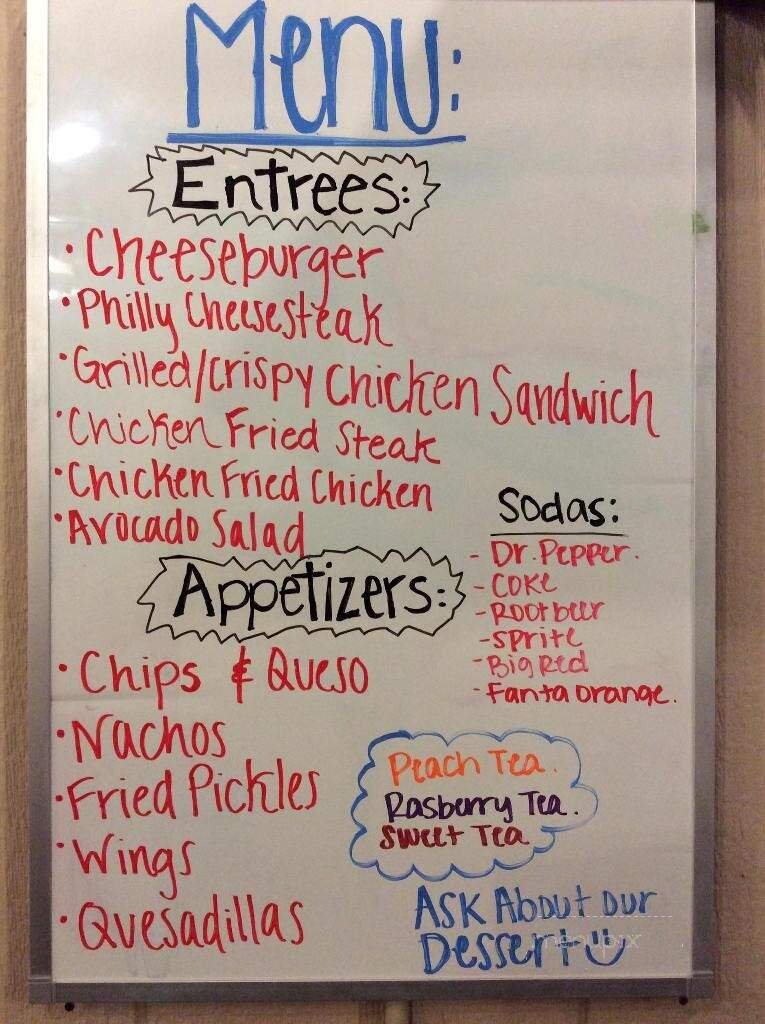 Menu:
Entrees:
• Cheeseburger
• Philly Cheesesteak
• Grilled/Crispy Chicken Sandwich
• Chicken Fried Steak
• Chicken Fried Chicken
• Avocado Salad
Sodas:
- Dr. Pepper.
- Coke
- Rootbeer
- Sprite
- Big Red
- Fanta Orange.
Appetizers:
• Chips & Queso
• Nachos
• Fried Pickles
• Wings
• Quesadillas
Peach Tea.
Rasberry Tea.
Sweet Tea
Ask About our
Dessert
menupix